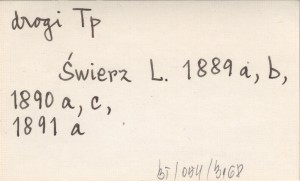 drogi Tp
Świerz L. 1889 a, b,
1890 a, c,
1891 a
BT/094/3168